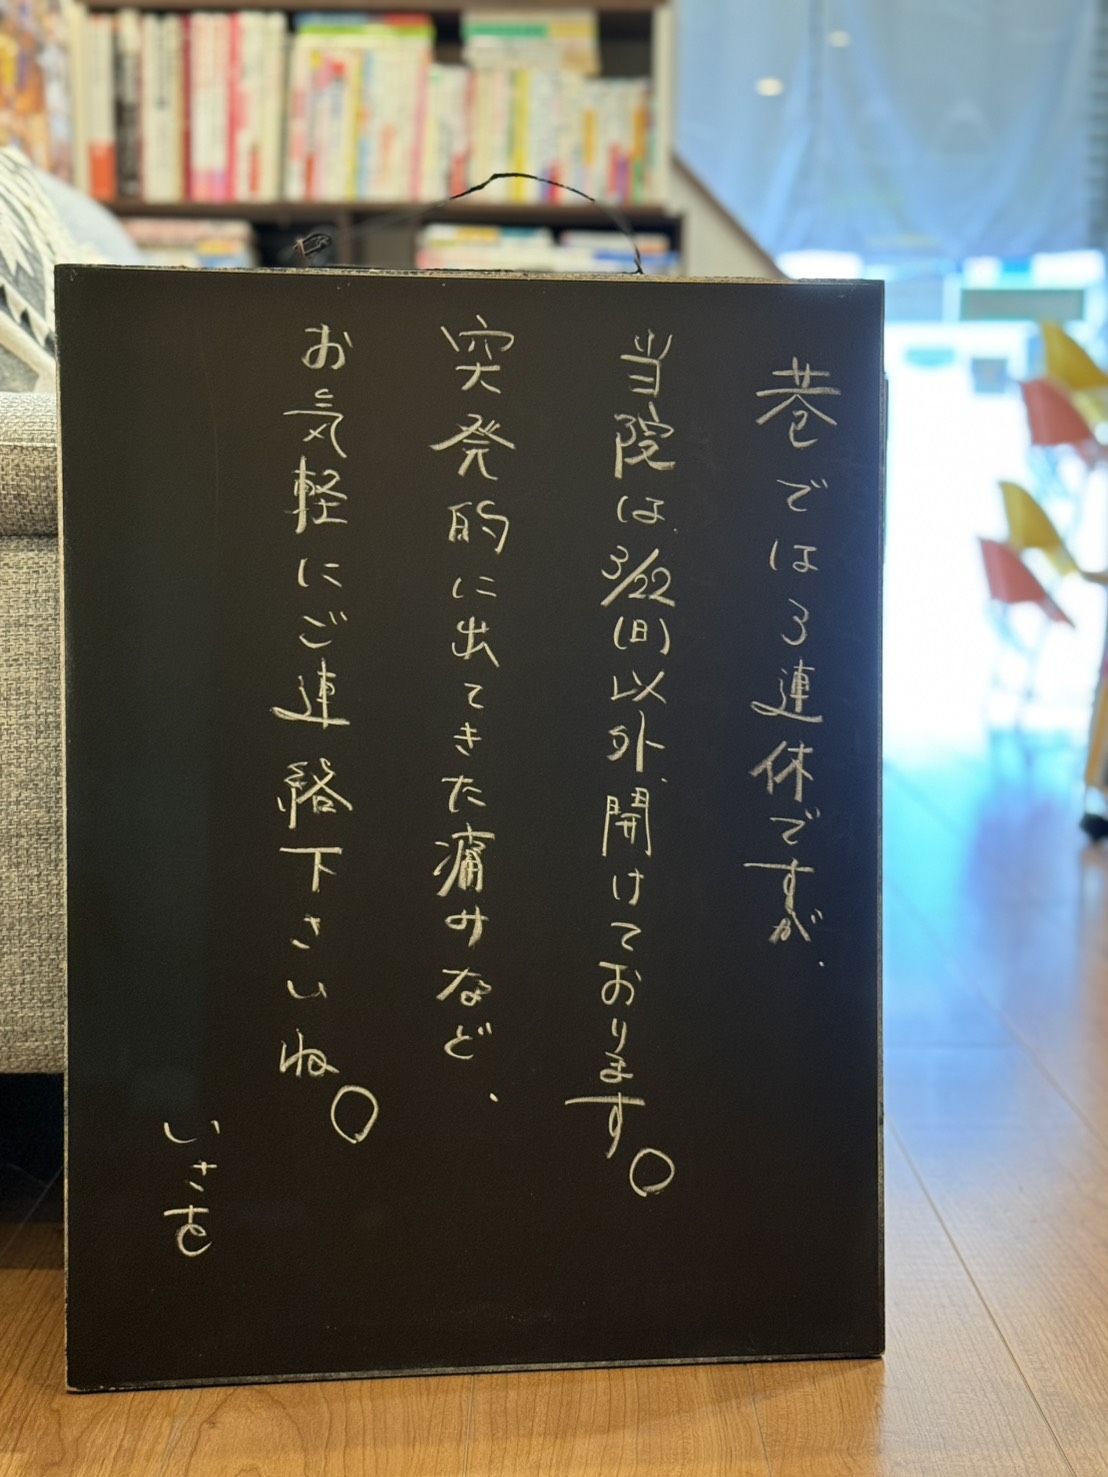 巷では3連休ですが、
当院は、3/22(日)以外、開けております。
突発的に出てきた痛みなど、
お気軽にご連絡下さいね。
いさを